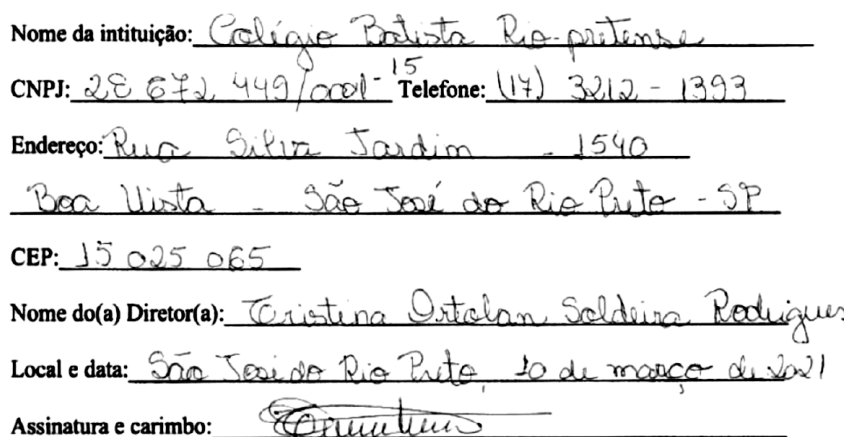 Nome da intituição: Colégio Batista Rio-pretense
CNPJ: 28 672 449/0001-15 Telefone: (17) 3212 - 1393
Endereço: Rua Silva Jardim - 1540
Boa Vista - São José do Rio Preto - SP
CEP: 15 025 065
Nome do(a) Diretor(a): Cristina Ortolan Saldeira Rodrigues
Local e data: São José do Rio Preto, 10 de março de 2021
Assinatura e carimbo: